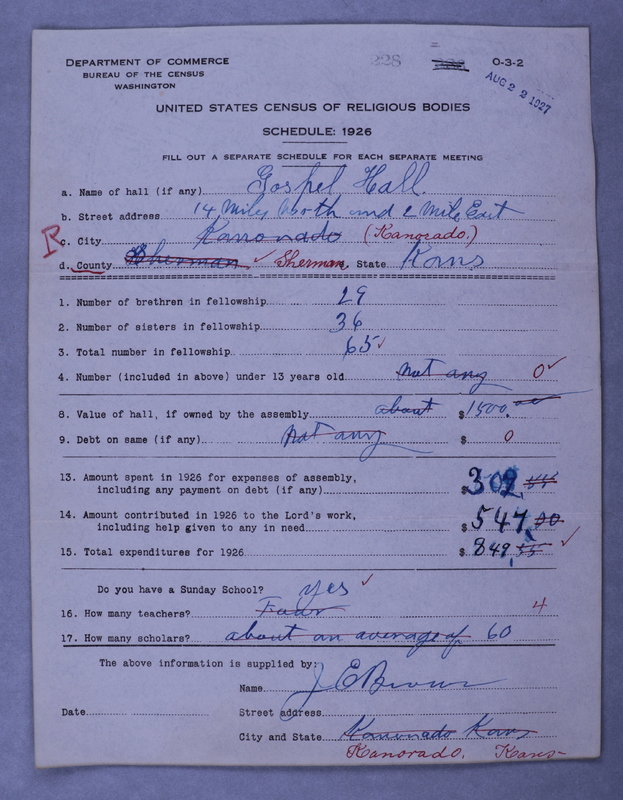 DEPARTMENT OF COMMERCE
BUREAU OF THE CENSUS
WASHINGTON
228
O-3-2
AUG 22 1927
UNITED STATES CENSUS OF RELIGIOUS BODIES
SCHEDULE: 1926
FILL OUT A SEPARATE SCHEDULE FOR EACH SEPARATE MEETING
a. Name of hall (if any) Gospel Hall.
b. Street address 14 Miles North and 2 Mile East
R
c. City Kanonado (Kanorado.)
d. County Sherman ✓ Sherman, State Kans
1. Number of brethren in fellowship 29
2. Number of sisters in fellowship 36
3. Total number in fellowship 65 ✓
4. Number (included in above) under 13 years old not any 0 ✓
8. Value of hall, if owned by the assembly about $1500.00
9. Debt on same (if any) Not any $ 0
13. Amount spent in 1926 for expenses of assembly,
including any payment on debt (if any) $302 55
14. Amount contributed in 1926 to the Lord's work,
including help given to any in need $547 00
15. Total expenditures for 1926 $849 55 ✓
Do you have a Sunday School? yes ✓
16. How many teachers? Four 4
17. How many scholars? about an average of 60
The above information is supplied by:
Name J E Brown
Date Street address
City and State Kanonado Kans
Kanorado, Kans-